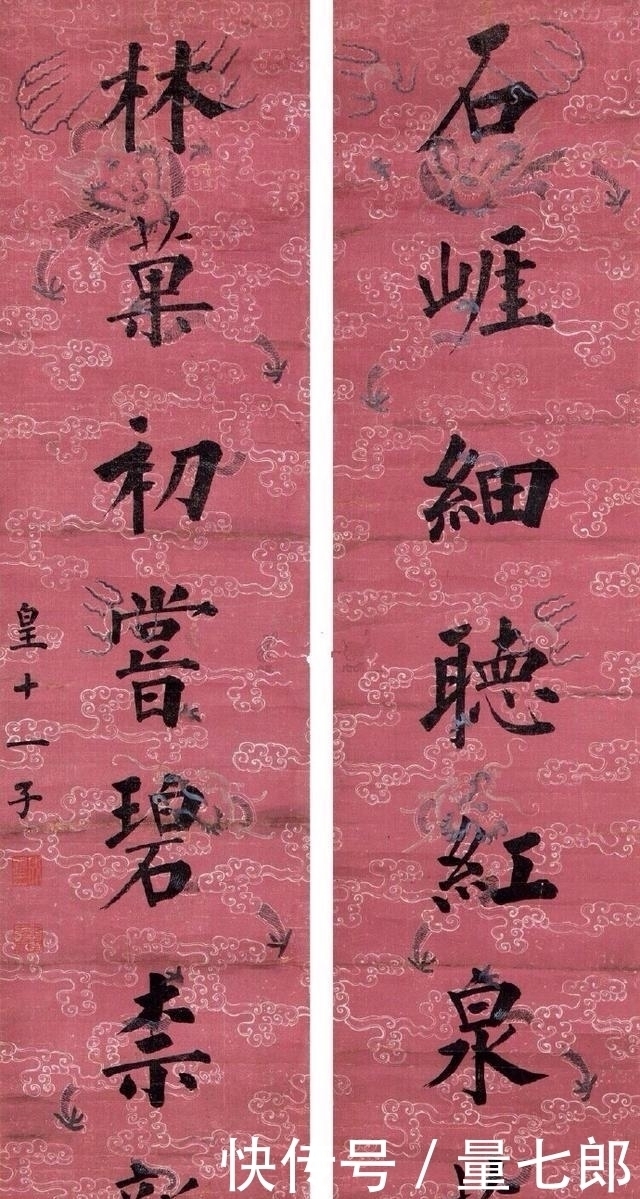 石崕細聽紅泉
林菓初嘗碧柰
皇十一子
快传号 / 量七郎